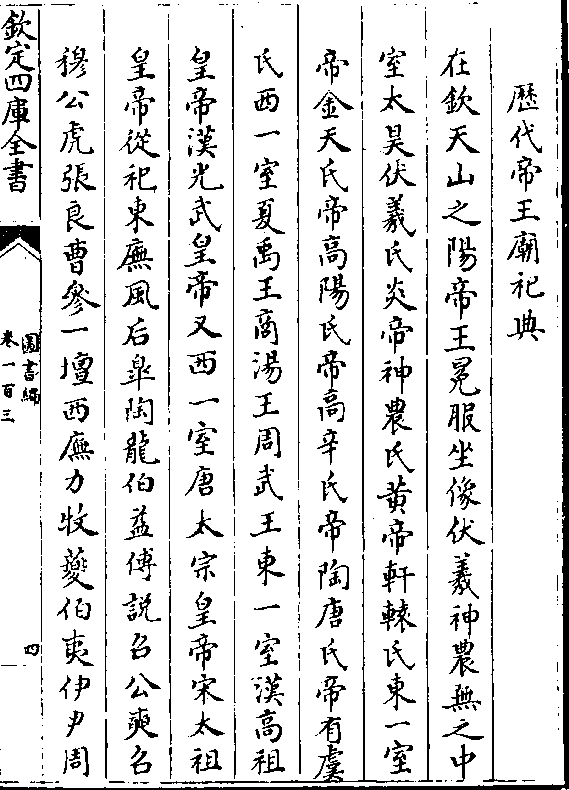 歷代帝王廟祀典
在欽天山之陽帝王冕服坐像伏羲神農無之中
室太昊伏羲氏炎帝神農氏黄帝軒轅氏東一室
帝金天氏帝高陽氏帝高辛氏帝陶唐氏帝有虞
氏西一室夏禹王商湯王周武王東一室漢高祖
皇帝漢光武皇帝又西一室唐太宗皇帝宋太祖
皇帝從祀東廡風后臯陶龍伯益傅說召公奭召
穆公虎張良曹參一壇西廡力牧夔伯夷伊尹周
欽定四庫全書
圖書編
卷一百三
四